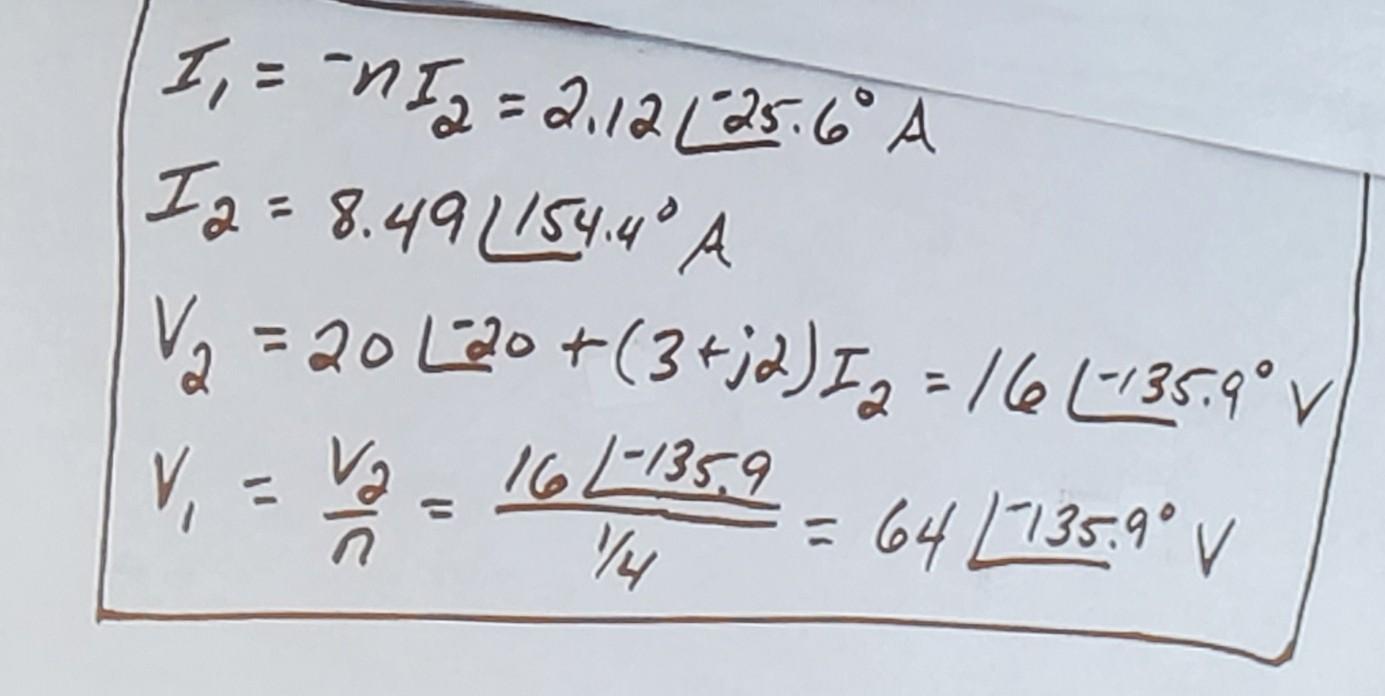 I₁ = -nI₂ = 2.12∠-25.6° A
I₂ = 8.49∠154.4° A
V₂ = 20∠-20 + (3+j2)I₂ = 16∠-135.9° V
V₁ = V₂/n = 16∠-135.9 / 1/4 = 64∠-135.9° V